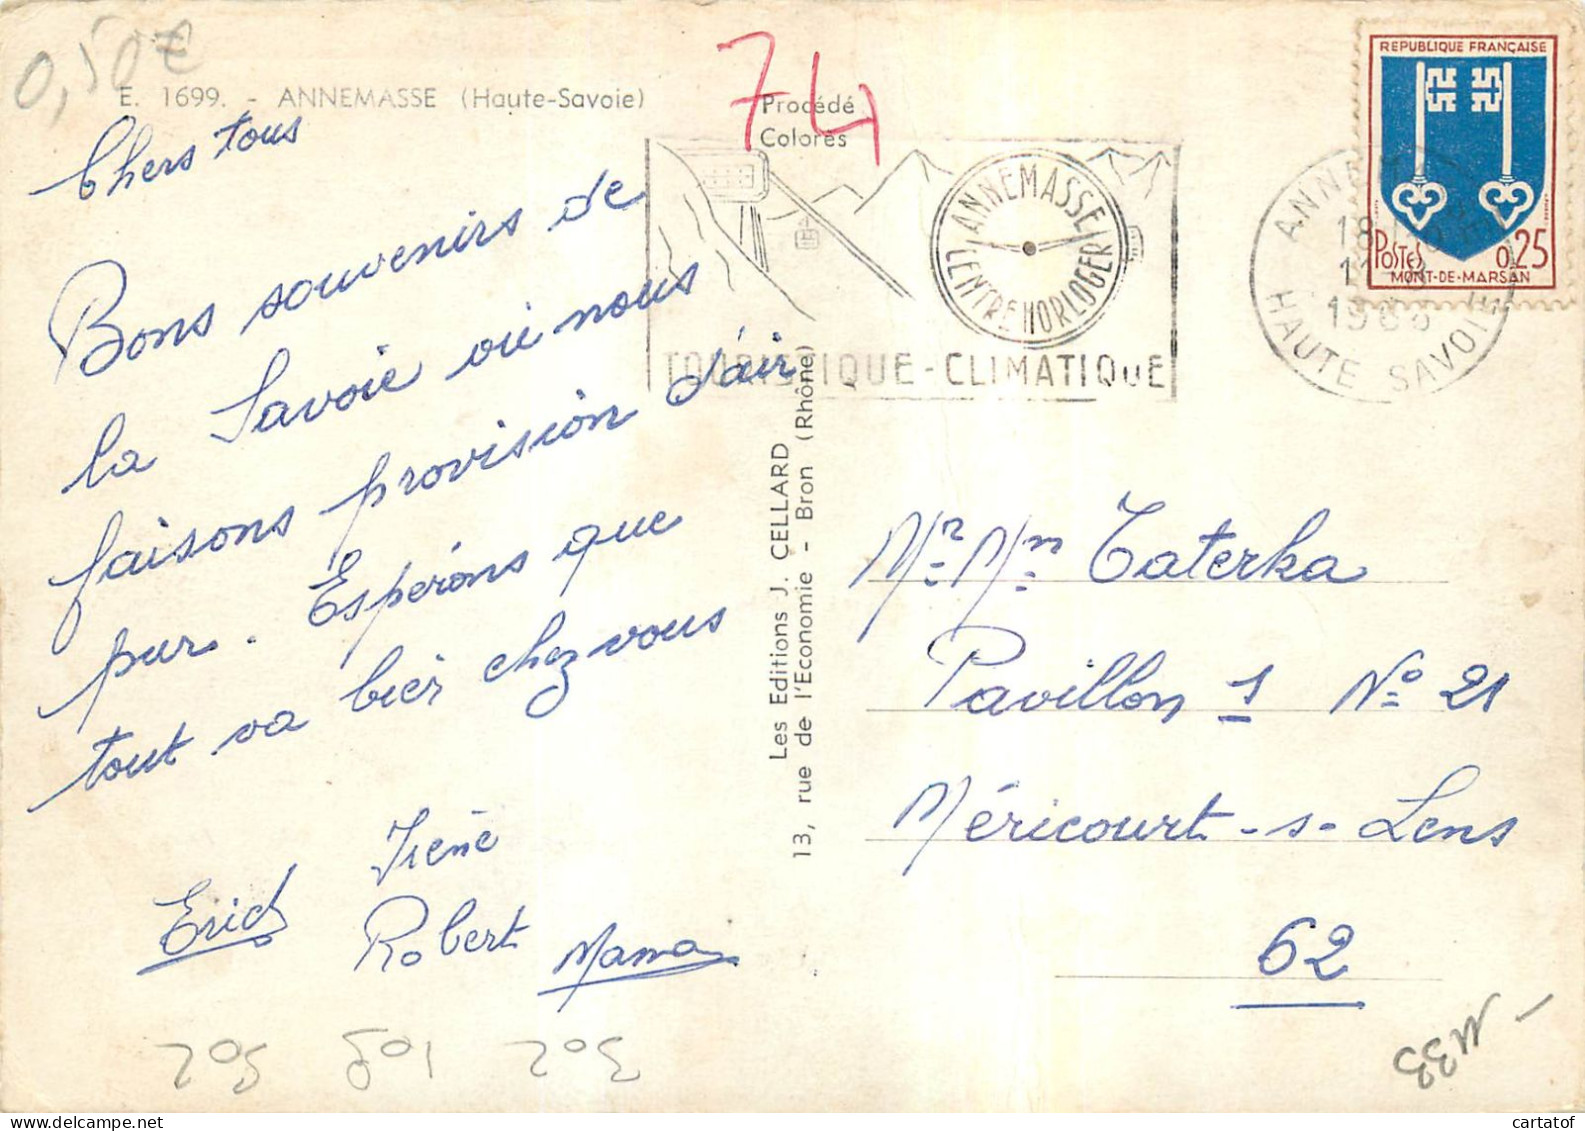 0,50€
E. 1699. - ANNEMASSE (Haute-Savoie)
74
Procédé
Colorès
Chers tous
Bons souvenirs de
la Savoie où nous
faisons provision d'air
pur. Espérons que
tout va bien chez vous
Irène
Eric
Robert
Mama
ANNEMASSE
CENTRE HORLOGER
TOURISTIQUE-CLIMATIQUE
HAUTE SAVOIE
18
REPUBLIQUE FRANÇAISE
POSTES 0,25
MONT-DE-MARSAN
Les Editions J. CELLARD
13, rue de l'Economie - Bron (Rhône)
Mr Mm Taterka
Pavillon 1 No 21
Méricourt-s-Lens
62
1133
302 109 502
cartatof